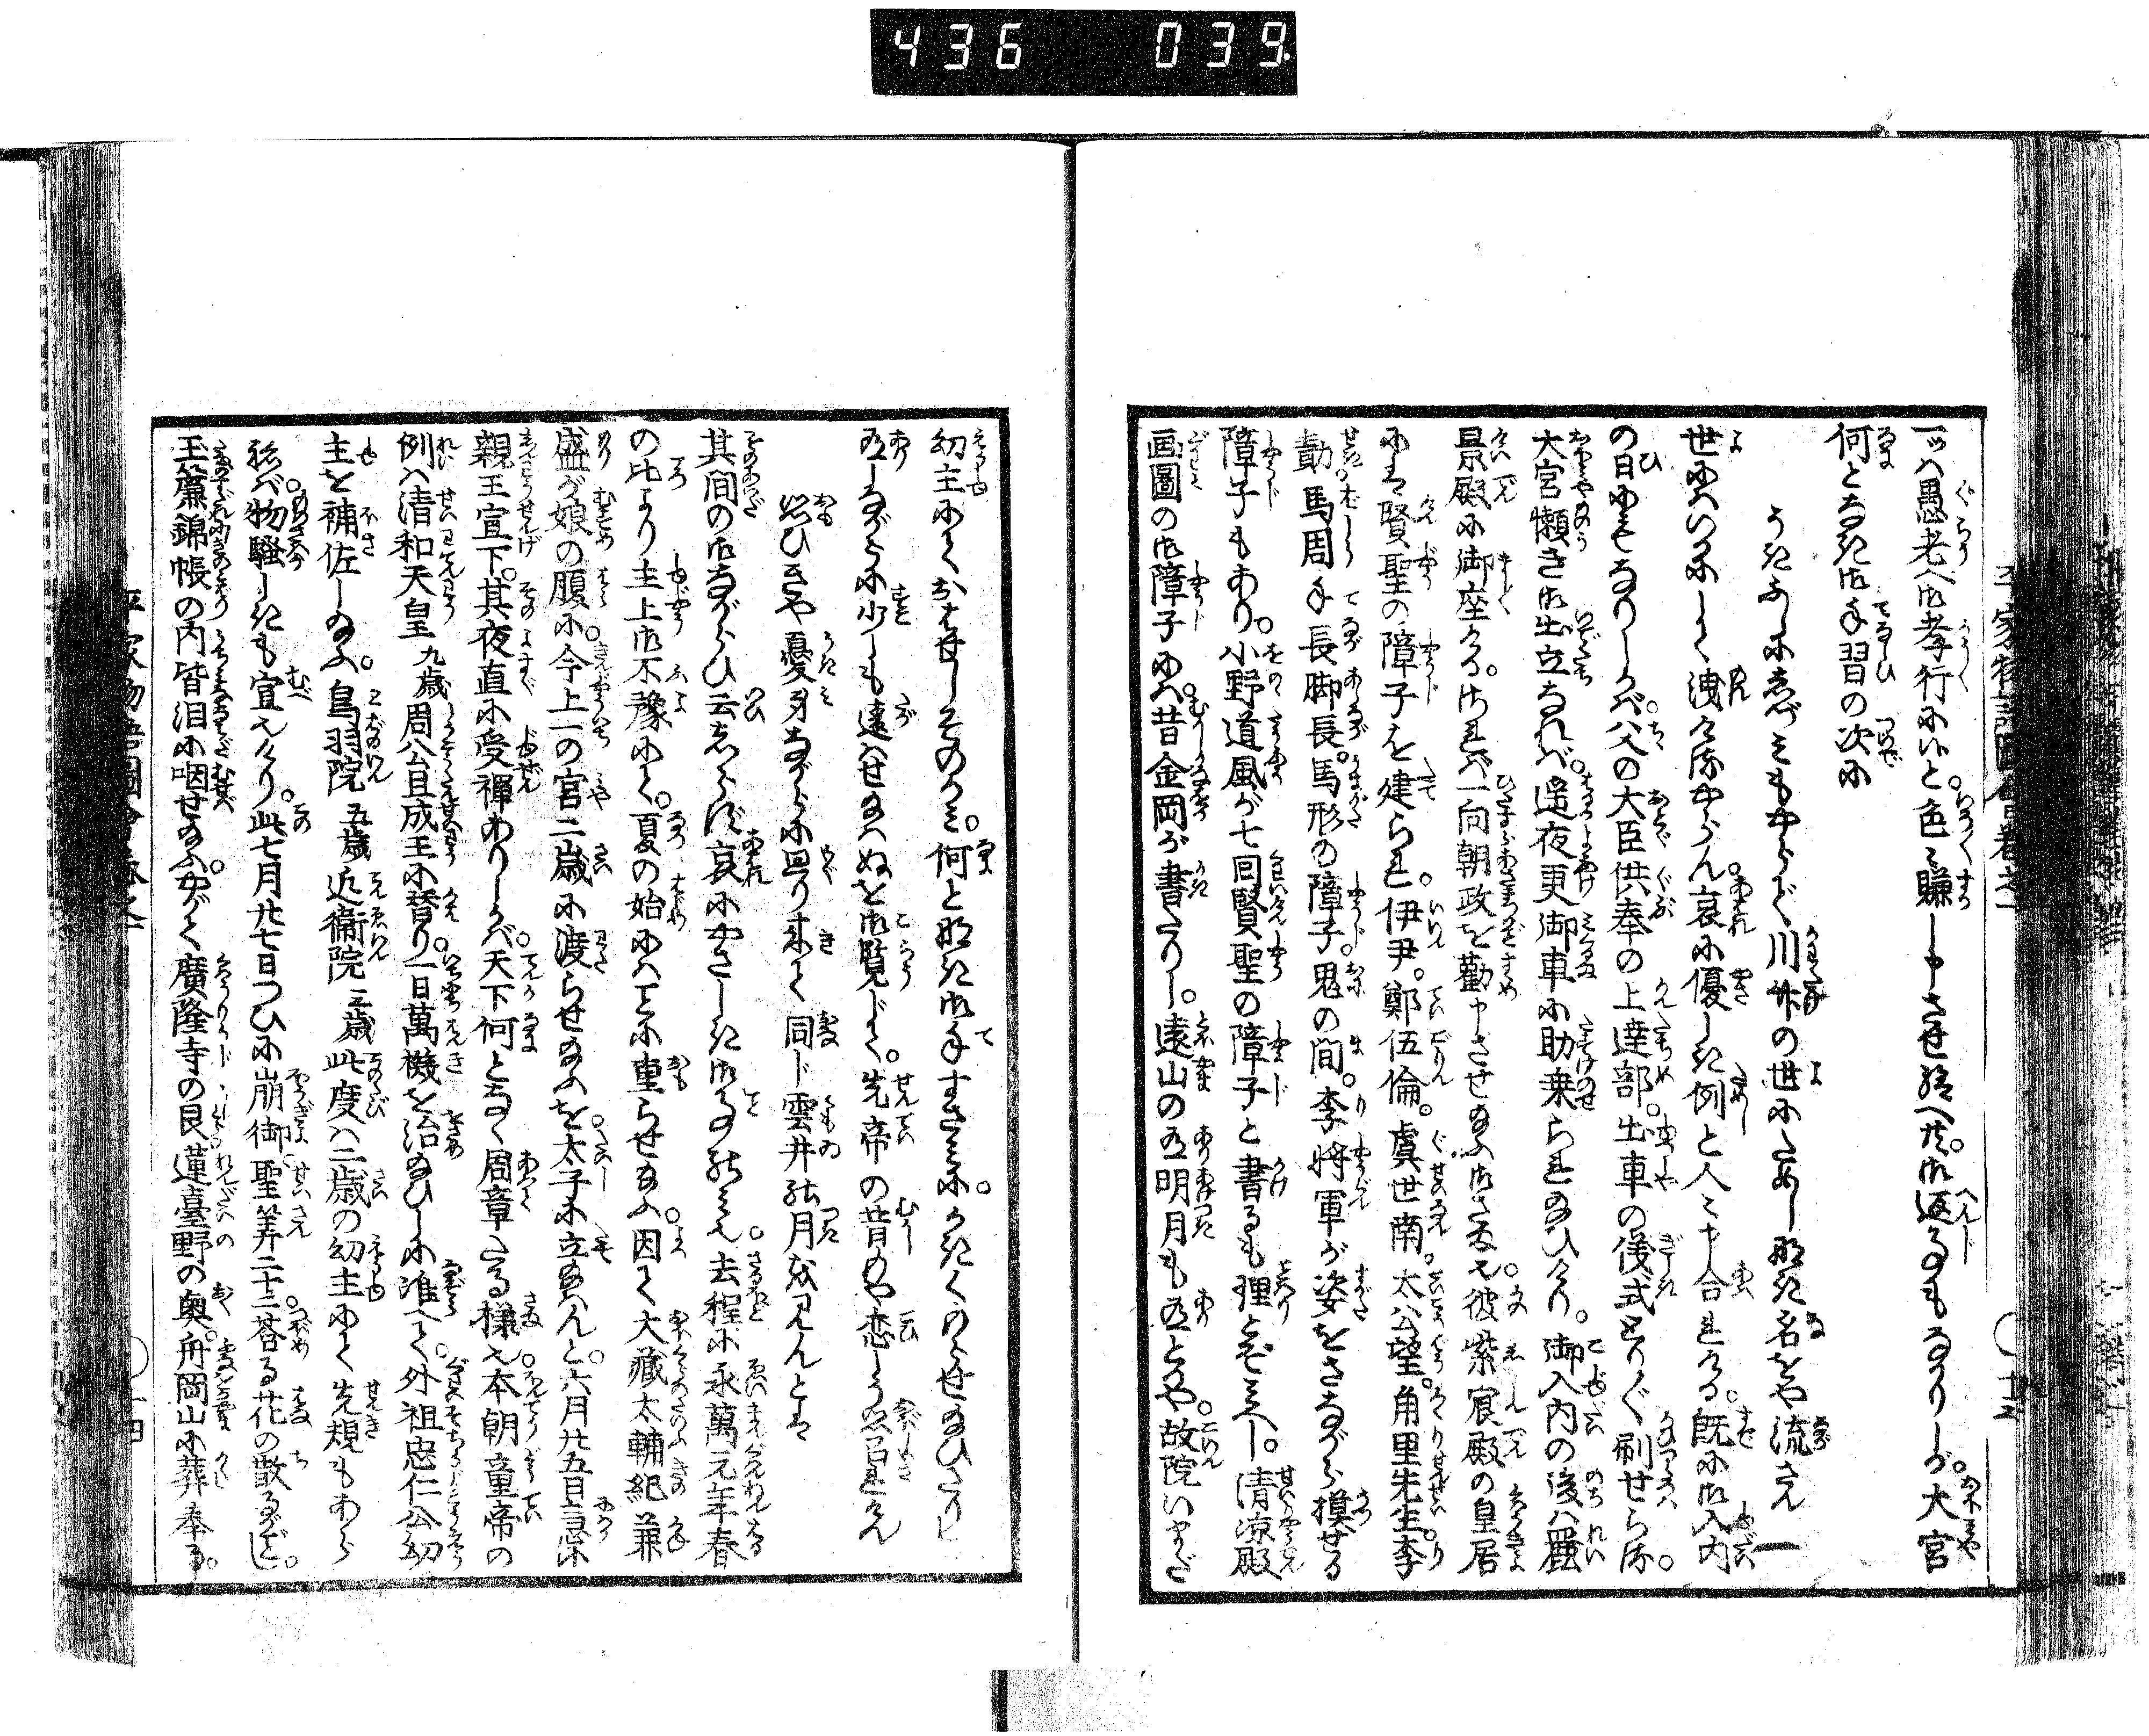 436 039
一ツハ愚老へ御孝行に候と。色々賺し申させ給へ共。御返事もなかりしが。大宮
何となき御手習の次に
うきふしに志づミもやらで川竹の世にためし那き名をや流さん
世にハいかにして洩けるやらん。哀に優しき例と人々申合れける。既に御入内
の日にもなりしかバ。父の大臣供奉の上達部。出車の儀式とり〴〵刷せらる。
大宮懶き御出立なれバ。遥夜更御車に助乗られ給ひけり。御入内の後ハ麗
景殿に御座ける。されバ一向朝政を勧申させ給ふ御さま也。彼紫宸殿の皇居
にハ賢聖の障子を建られ。伊尹。鄭伍倫。虞世南。太公望。角里先生。李
勣。馬周。手長脚長。馬形の障子。鬼の間。李将軍が姿をさながら摸せる
障子もあり。小野道風が七回賢聖の障子と書るも理とぞミへし。清凉殿
画圖の御障子にハ。昔金岡が書たりし。遠山の有明月も有とかや。故院いまだ
幼主にておはせしそのかミ。何と那き御手すさミに。かきくもらせ給ひさりし
有しながらに少しも違ハせ給ハぬを御覧じて。先帝の昔もや恋しう思召れけん
思ひきや憂身ながらに廻り来て同じ雲井の月を見んとハ
其間の御ながらひ云志らず哀にやさしき御事共也。去程に永萬元年春
の比より主上御不豫にて。夏の始にハことに重らせ給ふ。因て大蔵太輔紀兼
盛が娘の腹に。今上一の宮二歳に渡らせ給ふを。太子に立給ハんと。六月廿五日急
親王宣下。其夜直に受禅ありしかバ。天下何となく周章たる様也。本朝童帝の
例ハ清和天皇九歳周公旦成王に替り。一日萬機を治給ひしに准へて。外祖忠仁公幼
主を補佐し給ふ。鳥羽院五歳近衛院三歳此度ハ二歳の幼主にて先規もあら
ねバ。物騒しきも宜也けり。此七月廿七日つひに崩御。聖筭二十三。莟る花の散るがごと。
玉簾錦帳の内皆泪に咽せ給ふ。やがて廣隆寺の艮蓮臺野の奥。舟岡山に葬奉る。